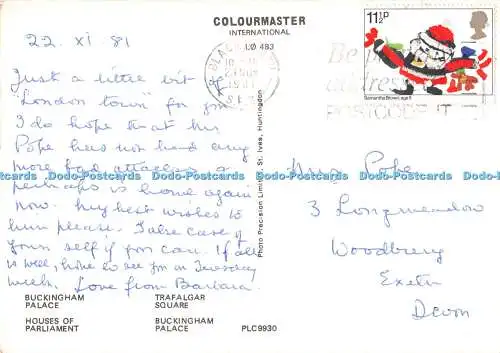 COLOURMASTER
INTERNATIONAL
LO 493
22. xi. 81
Just a little bit of
"London town" for you
I do hope that
Pope has not had any
more bad attacks &
perhaps is home again
now. My best wishes to
him please. Take care of
yourself if you can. If all
is well, hope to see you on Tuesday
week. Love from Barbara.
BUCKINGHAM
PALACE
TRAFALGAR
SQUARE
HOUSES OF
PARLIAMENT
BUCKINGHAM
PALACE
PLC9930
Photo Precision Limited, St. Ives, Huntingdon
11½P
Samantha Brown age 5
Be
address
POSTCODE IT
Pope
3 Longmeadow
Woodbury
Exeter
Devon
Dodo-Postcards Dodo-Postcards Dodo-Postcards Dodo-Postcards